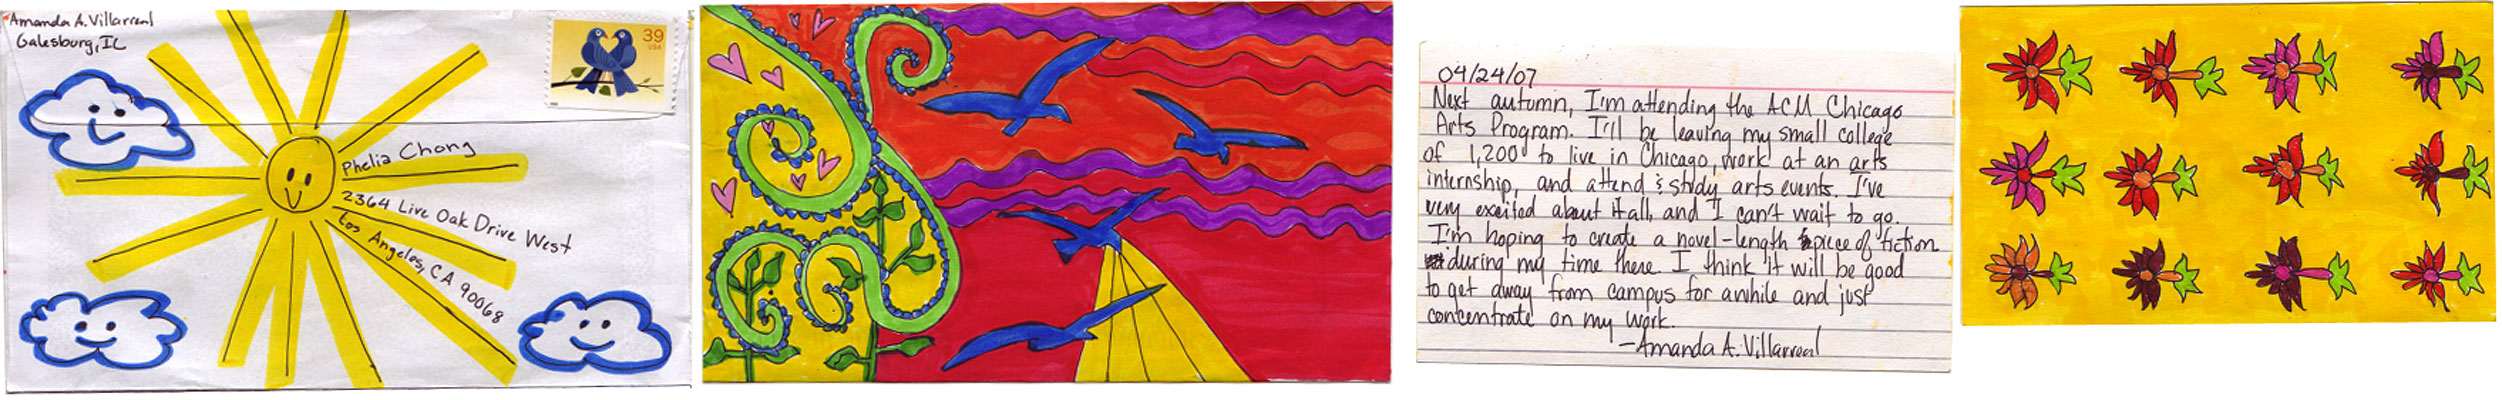 Amanda A. Villarreal
Galesburg, IL
39
USA
Phelia Chong
2364 Live Oak Drive West
Los Angeles, CA 90068
04/24/07
Next autumn, I'm attending the ACM Chicago
Arts Program. I'll be leaving my small college
of 1,200 to live in Chicago, work at an arts
internship, and attend & study arts events. I've
very excited about it all, and I can't wait to go.
I'm hoping to create a novel-length piece of fiction
during my time there. I think it will be good
to get away from campus for awhile and just
concentrate on my work.
—Amanda A. Villarreal